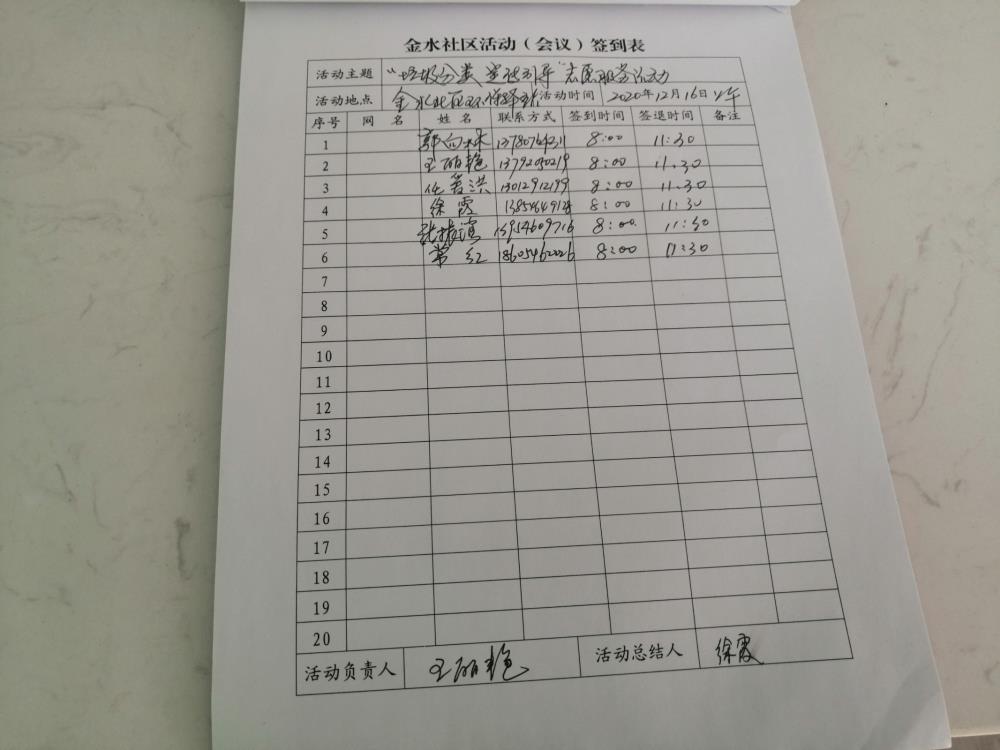 金水社区活动（会议）签到表
活动主题 "垃圾分类 宣传引导"志愿服务活动
活动地点 金水社区 活动时间 2020年12月16日上午
序号 网 名 姓 名 联系方式 签到时间 签退时间 备注
1 8:00 11:30
2 王丽艳 13792050219 8:00 11.30
3 13012912199 8:00 11.30
4 徐霞 8:00 11:30
5 8:00. 11:30
6 常红 18605462226 8:00 11:30
7
8
9
10
11
12
13
14
15
16
17
18
19
20
活动负责人 王丽艳 活动总结人 徐霞